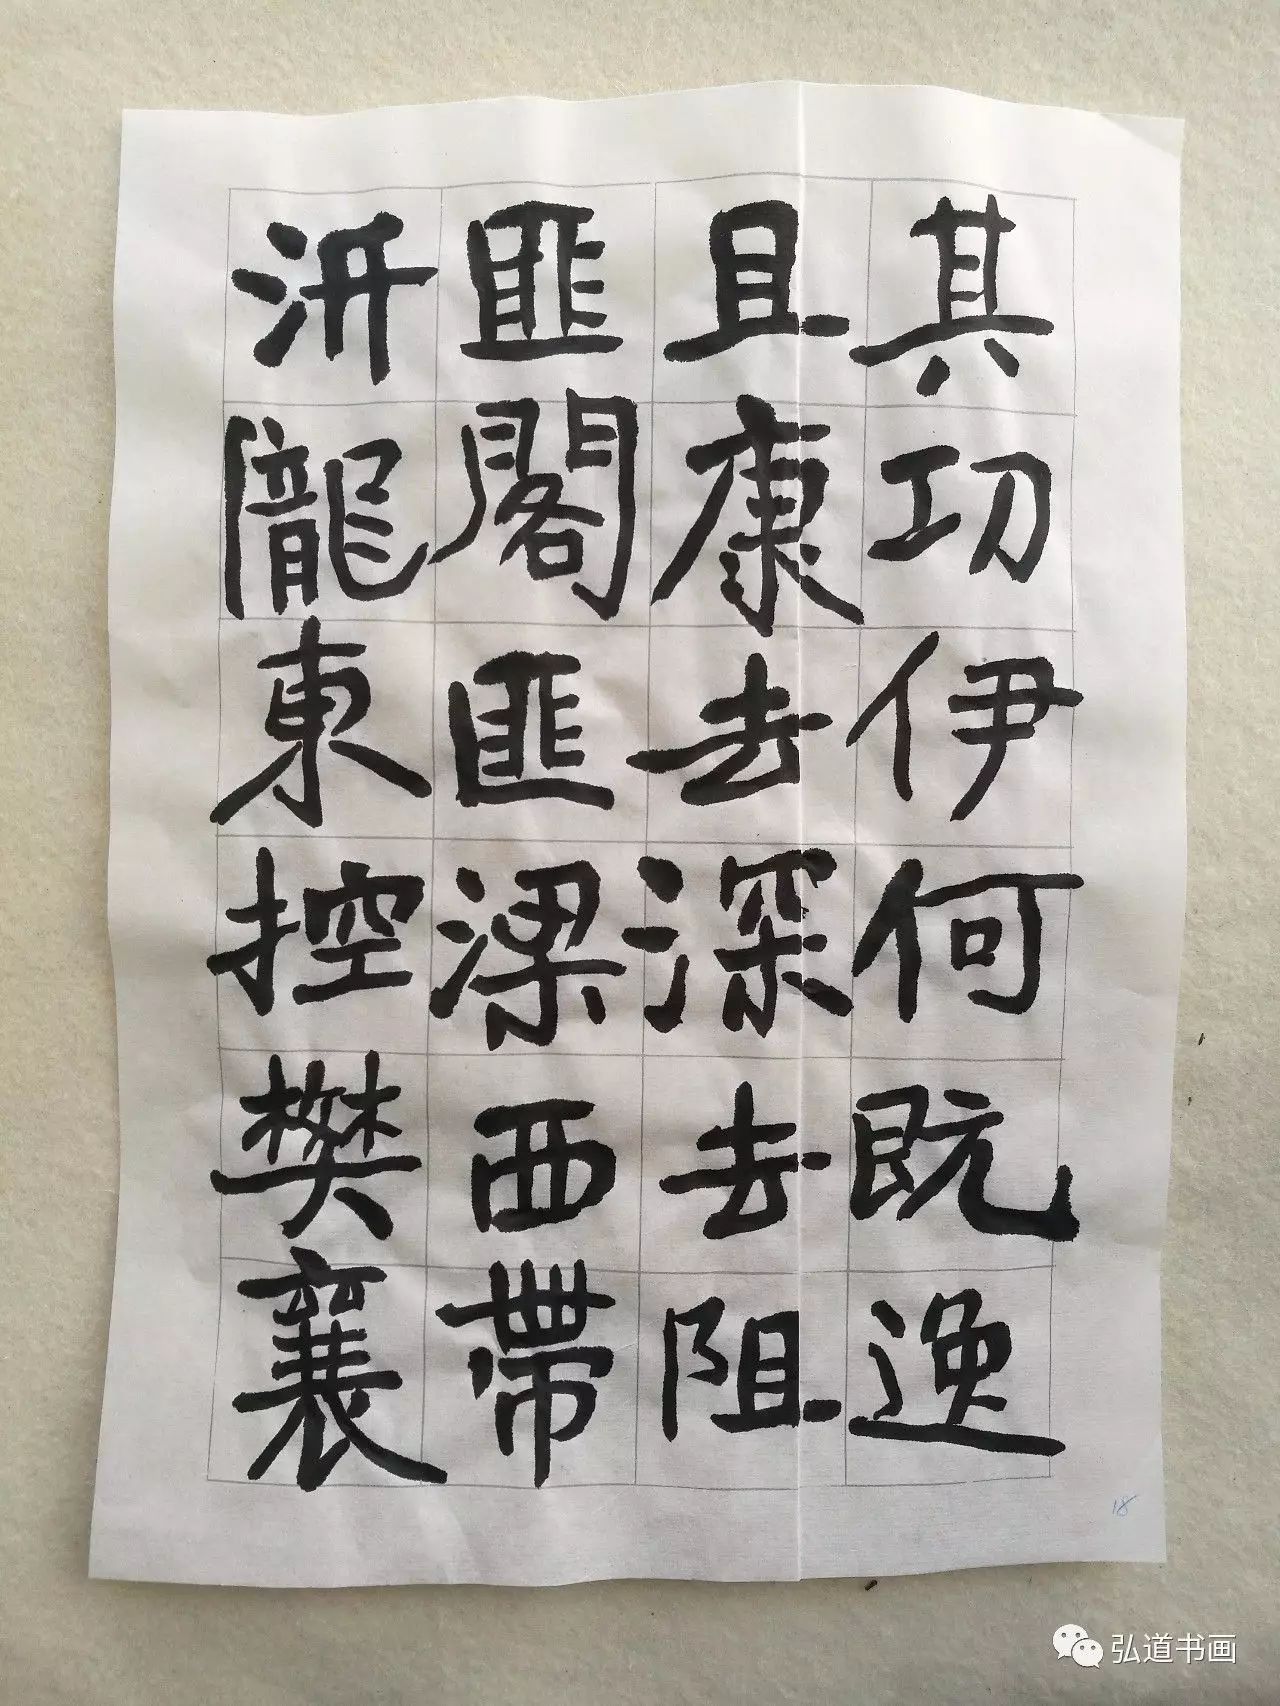 其功伊何既逸
且康去深去阻
匪閣匪梁西帶
汧隴東控樊襄
18
弘道书画